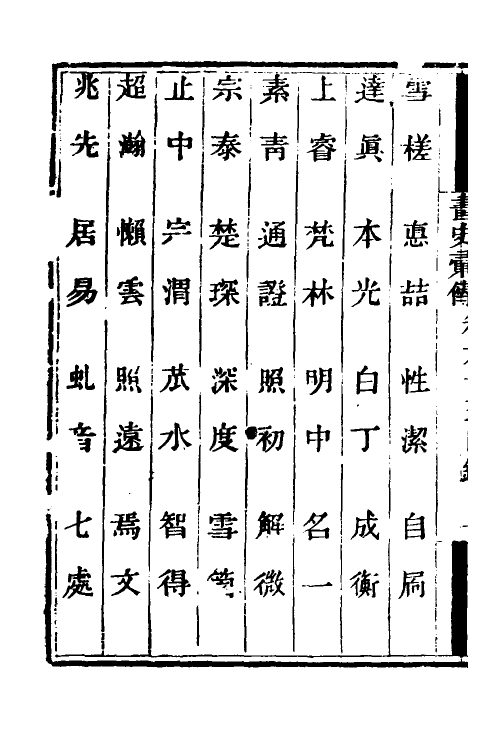 畫史彙傳
雪槎 惪喆 性潔 自扃
達眞 本光 白丁 成衡
上睿 梵林 明中 名一
素靑 通證 照初 解微
宗泰 楚琛 深度 雪
止中 宗渭 水 智得
超瀚 懶雲 照遠 焉文
兆先 居易 虬音 七處